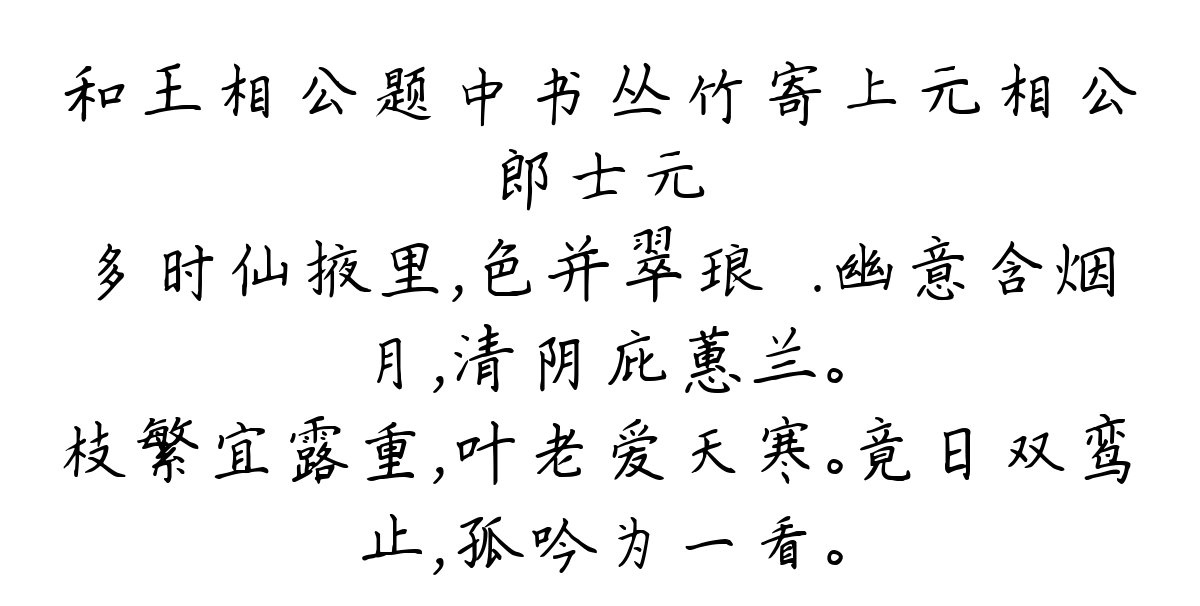 和王相公题中书丛竹寄上元相公
郎士元
多时仙掖里,色并翠琅 .幽意含烟
月,清阴庇蕙兰。
枝繁宜露重,叶老爱天寒。竟日双鸾
止,孤吟为一看。